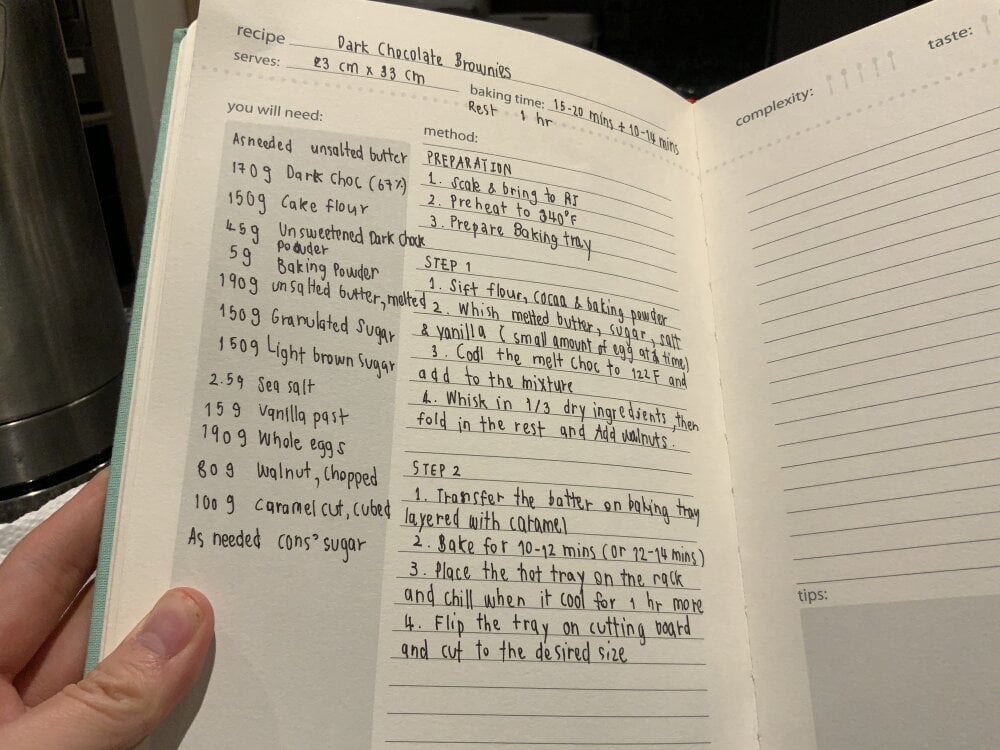 recipe Dark Chocolate Brownies
serves: 23 cm x 33 cm
baking time: 15-20 mins + 10-14 mins
Rest 1 hr
you will need:
As needed unsalted butter
170g Dark choc (67%)
150g Cake flour
45g Unsweetened Dark chock
Powder
5g Baking Powder
190g unsalted butter, melted
150g Granulated Sugar
150g Light brown sugar
2.5g Sea salt
15g Vanilla past
190g Whole eggs
80g Walnut, chopped
100g Caramel cut, cubed
As needed cons' sugar
method:
PREPARATION
1. Scale & bring to RT
2. Preheat to 340°F
3. Prepare Baking tray
STEP 1
1. Sift flour, cocoa & baking powder
2. Whish melted butter, sugar, salt
& vanilla (small amount of egg at a time)
3. Cool the melt choc to 122F and
add to the mixture
4. Whisk in 1/3 dry ingredients, then
fold in the rest and Add walnuts.
STEP 2
1. Transfer the batter on baking tray
layered with caramel
2. Bake for 10-12 mins (or 12-14 mins)
3. Place the hot tray on the rack
and chill when it cool for 1 hr more
4. Flip the tray on cutting board
and cut to the desired size
complexity:
taste:
tips: